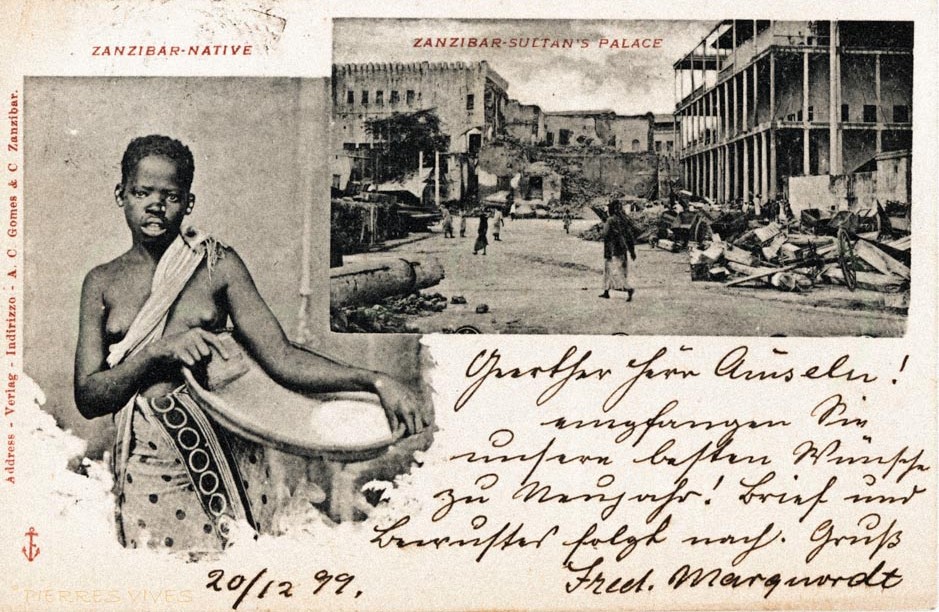 ZANZIBAR-NATIVE
ZANZIBAR-SULTAN'S PALACE
Address - Verlag - Indirizzo - A. C. Gomes & C Zanzibar.
Geerther Herr
empfangen Sie
unsere besten Wünsche
zu Neujahr! Brief und
Bewußtes folgt nach. Gruß
20/12 99.
Fred. Marquordt
PIERRES VIVES